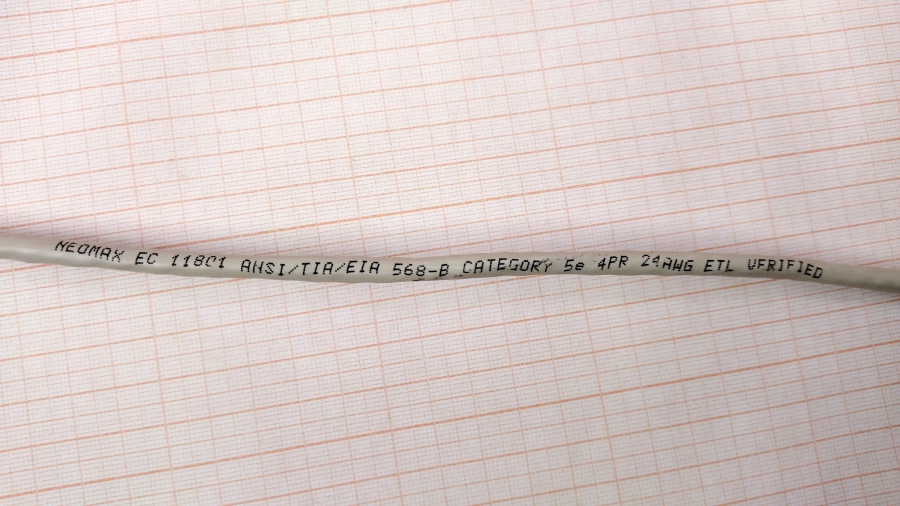 NEOMAX EC 11801 ANSI/TIA/EIA 568-B CATEGORY 5e 4PR 24AWG ETL VERIFIED